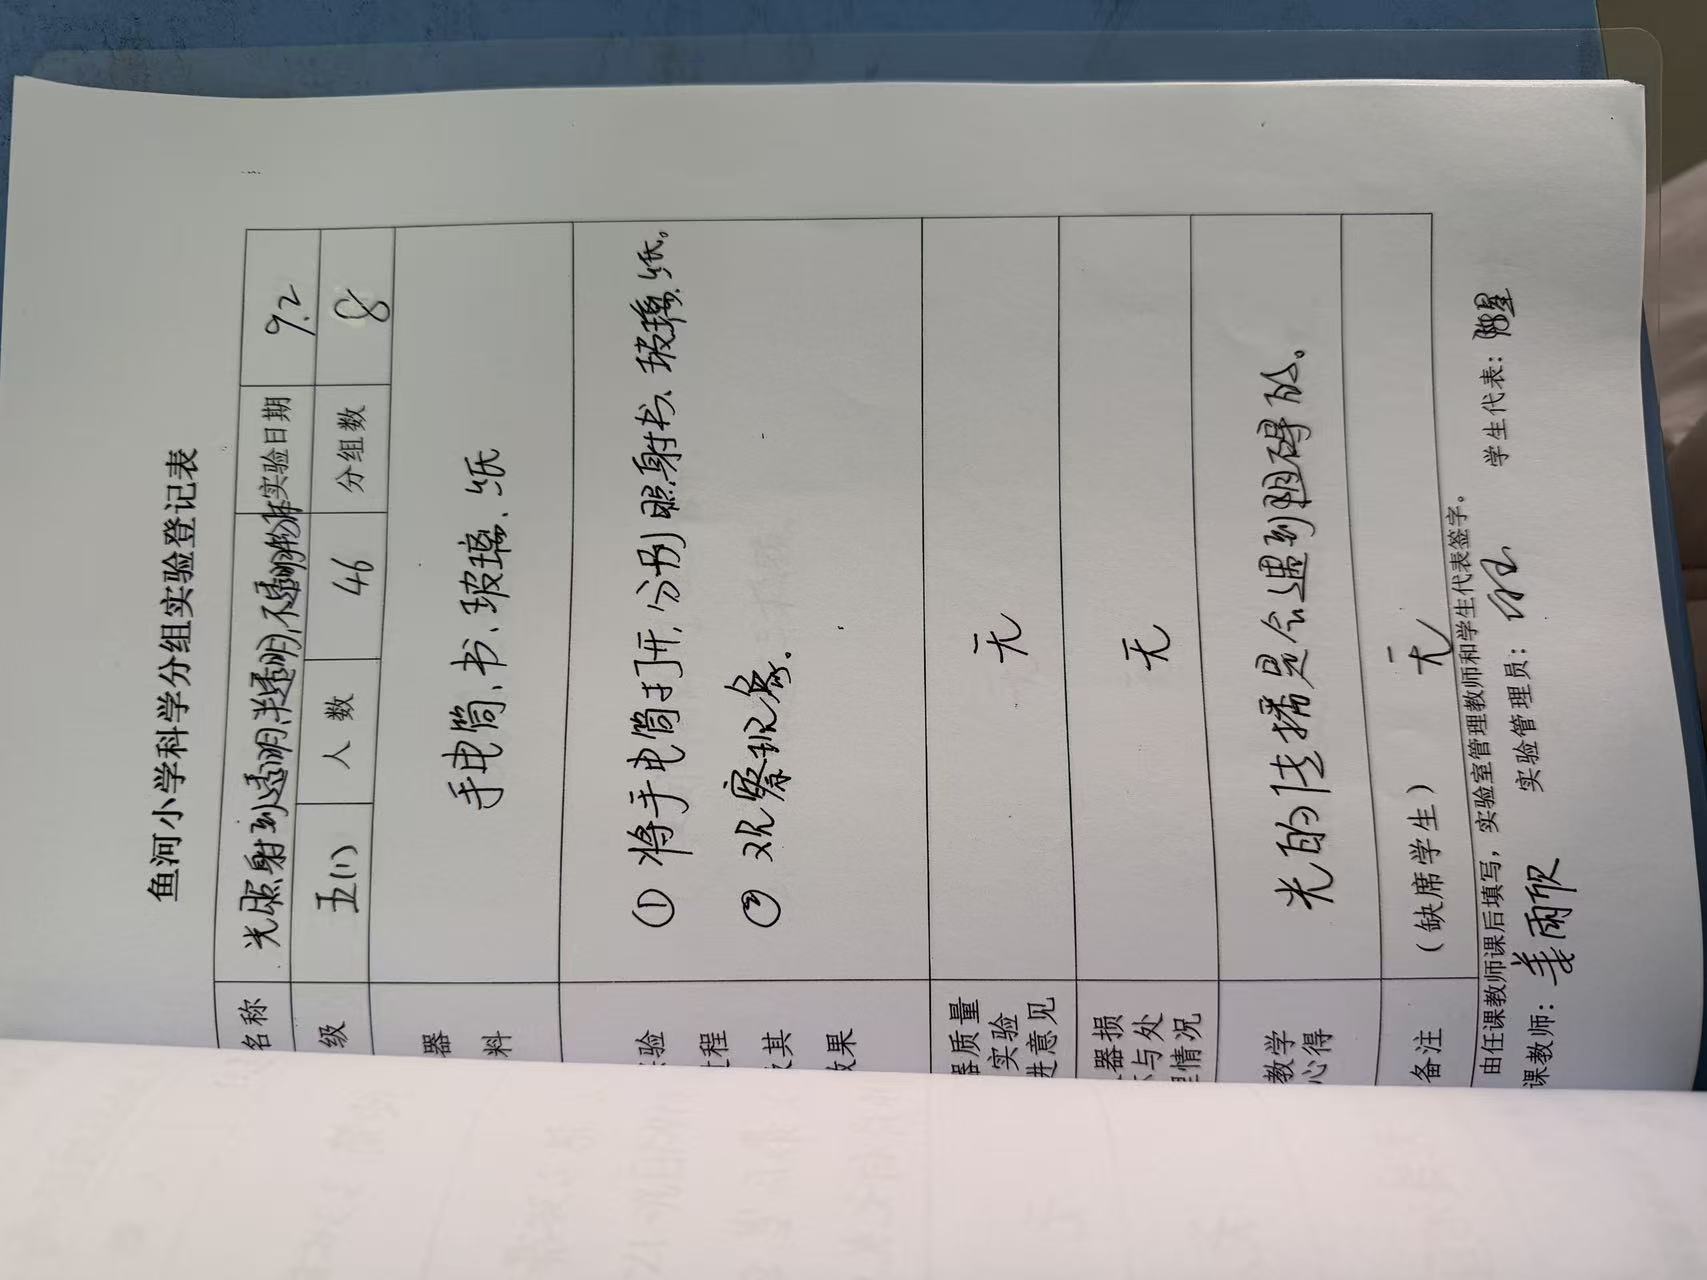 鱼河小学科学分组实验登记表
名称 光照射到透明、半透明、不透明物体 实验日期 9.2
级 五(1) 人数 46 分组数 8
器
料
手电筒、书、玻璃、纸
验
过程
及其
效果
① 将手电筒打开,分别照射书、玻璃、纸。
② 观察现象。
器质量
实验
进意见
无
器损
与处
理情况
无
教学
心得
光的传播是会遇到阻碍的。
备注 (缺席学生) 无
由任课教师课后填写,实验室管理教师和学生代表签字。
课教师: 姜雨欣 实验管理员: 学生代表: